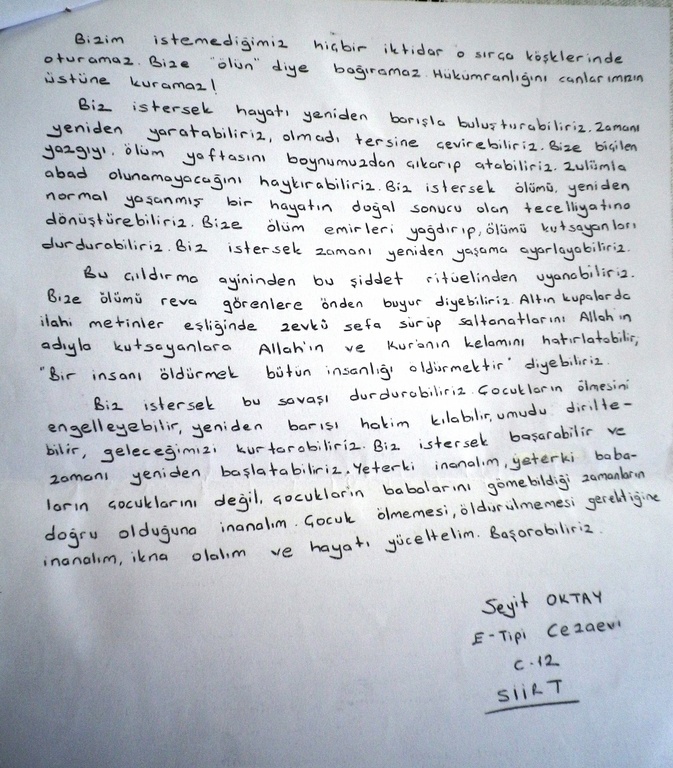 Bizim istemediğimiz hiçbir iktidar o sırça köşklerinde
oturamaz. Bize "ölün" diye bağıramaz. Hükümranlığını canlarımızın
üstüne kuramaz!
Biz istersek hayatı yeniden barışla buluşturabiliriz. Zamanı
yeniden yaratabiliriz, olmadı tersine çevirebiliriz. Bize biçilen
yazgıyı, ölüm yaftasını boynumuzdan çıkarıp atabiliriz. Zulümle
abad olunamayacağını haykırabiliriz. Biz istersek ölümü, yeniden
normal yaşanmış bir hayatın doğal sonucu olan tecelliyatına
dönüştürebiliriz. Bize ölüm emirleri yağdırıp, ölümü kutsayanları
durdurabiliriz. Biz istersek zamanı yeniden yaşama ayarlayabiliriz.
Bu çıldırma ayininden bu şiddet ritüelinden uyanabiliriz.
Bize ölümü reva görenlere önden buyur diyebiliriz. Altın kupalarda
ilahi metinler eşliğinde zevkû sefa sürüp saltanatlarını Allah'ın
adıyla kutsayanlara Allah'ın ve Kur'anın kelamını hatırlatabilir,
"Bir insanı öldürmek bütün insanlığı öldürmektir" diyebiliriz.
Biz istersek bu savaşı durdurabiliriz. Çocukların ölmesini
engelleyebilir, yeniden barışı hakim kılabilir, umudu dirilte-
bilir, geleceğimizi kurtarabiliriz. Biz istersek başarabilir ve
zamanı yeniden başlatabiliriz. Yeterki inanalım, yeterki baba-
ların çocuklarını değil, çocukların babalarını gömebildiği zamanların
doğru olduğuna inanalım. Çocuk ölmemesi, öldürülmemesi gerektiğine
inanalım, ikna olalım ve hayatı yüceltelim. Başarabiliriz.
Seyit OKTAY
E-Tipi Cezaevi
C-12
SİİRT